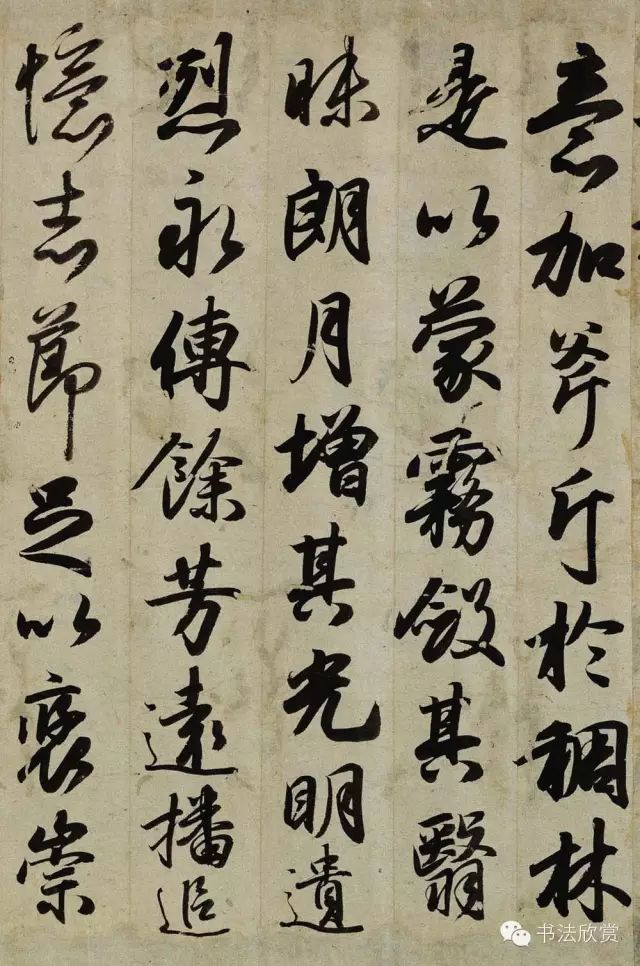 意加斧斤於稠林
是以蒙霧斂其翳
昧朗月增其光明遺
烈永傳餘芳遠播追
憶志節足以褒崇
书法欣赏